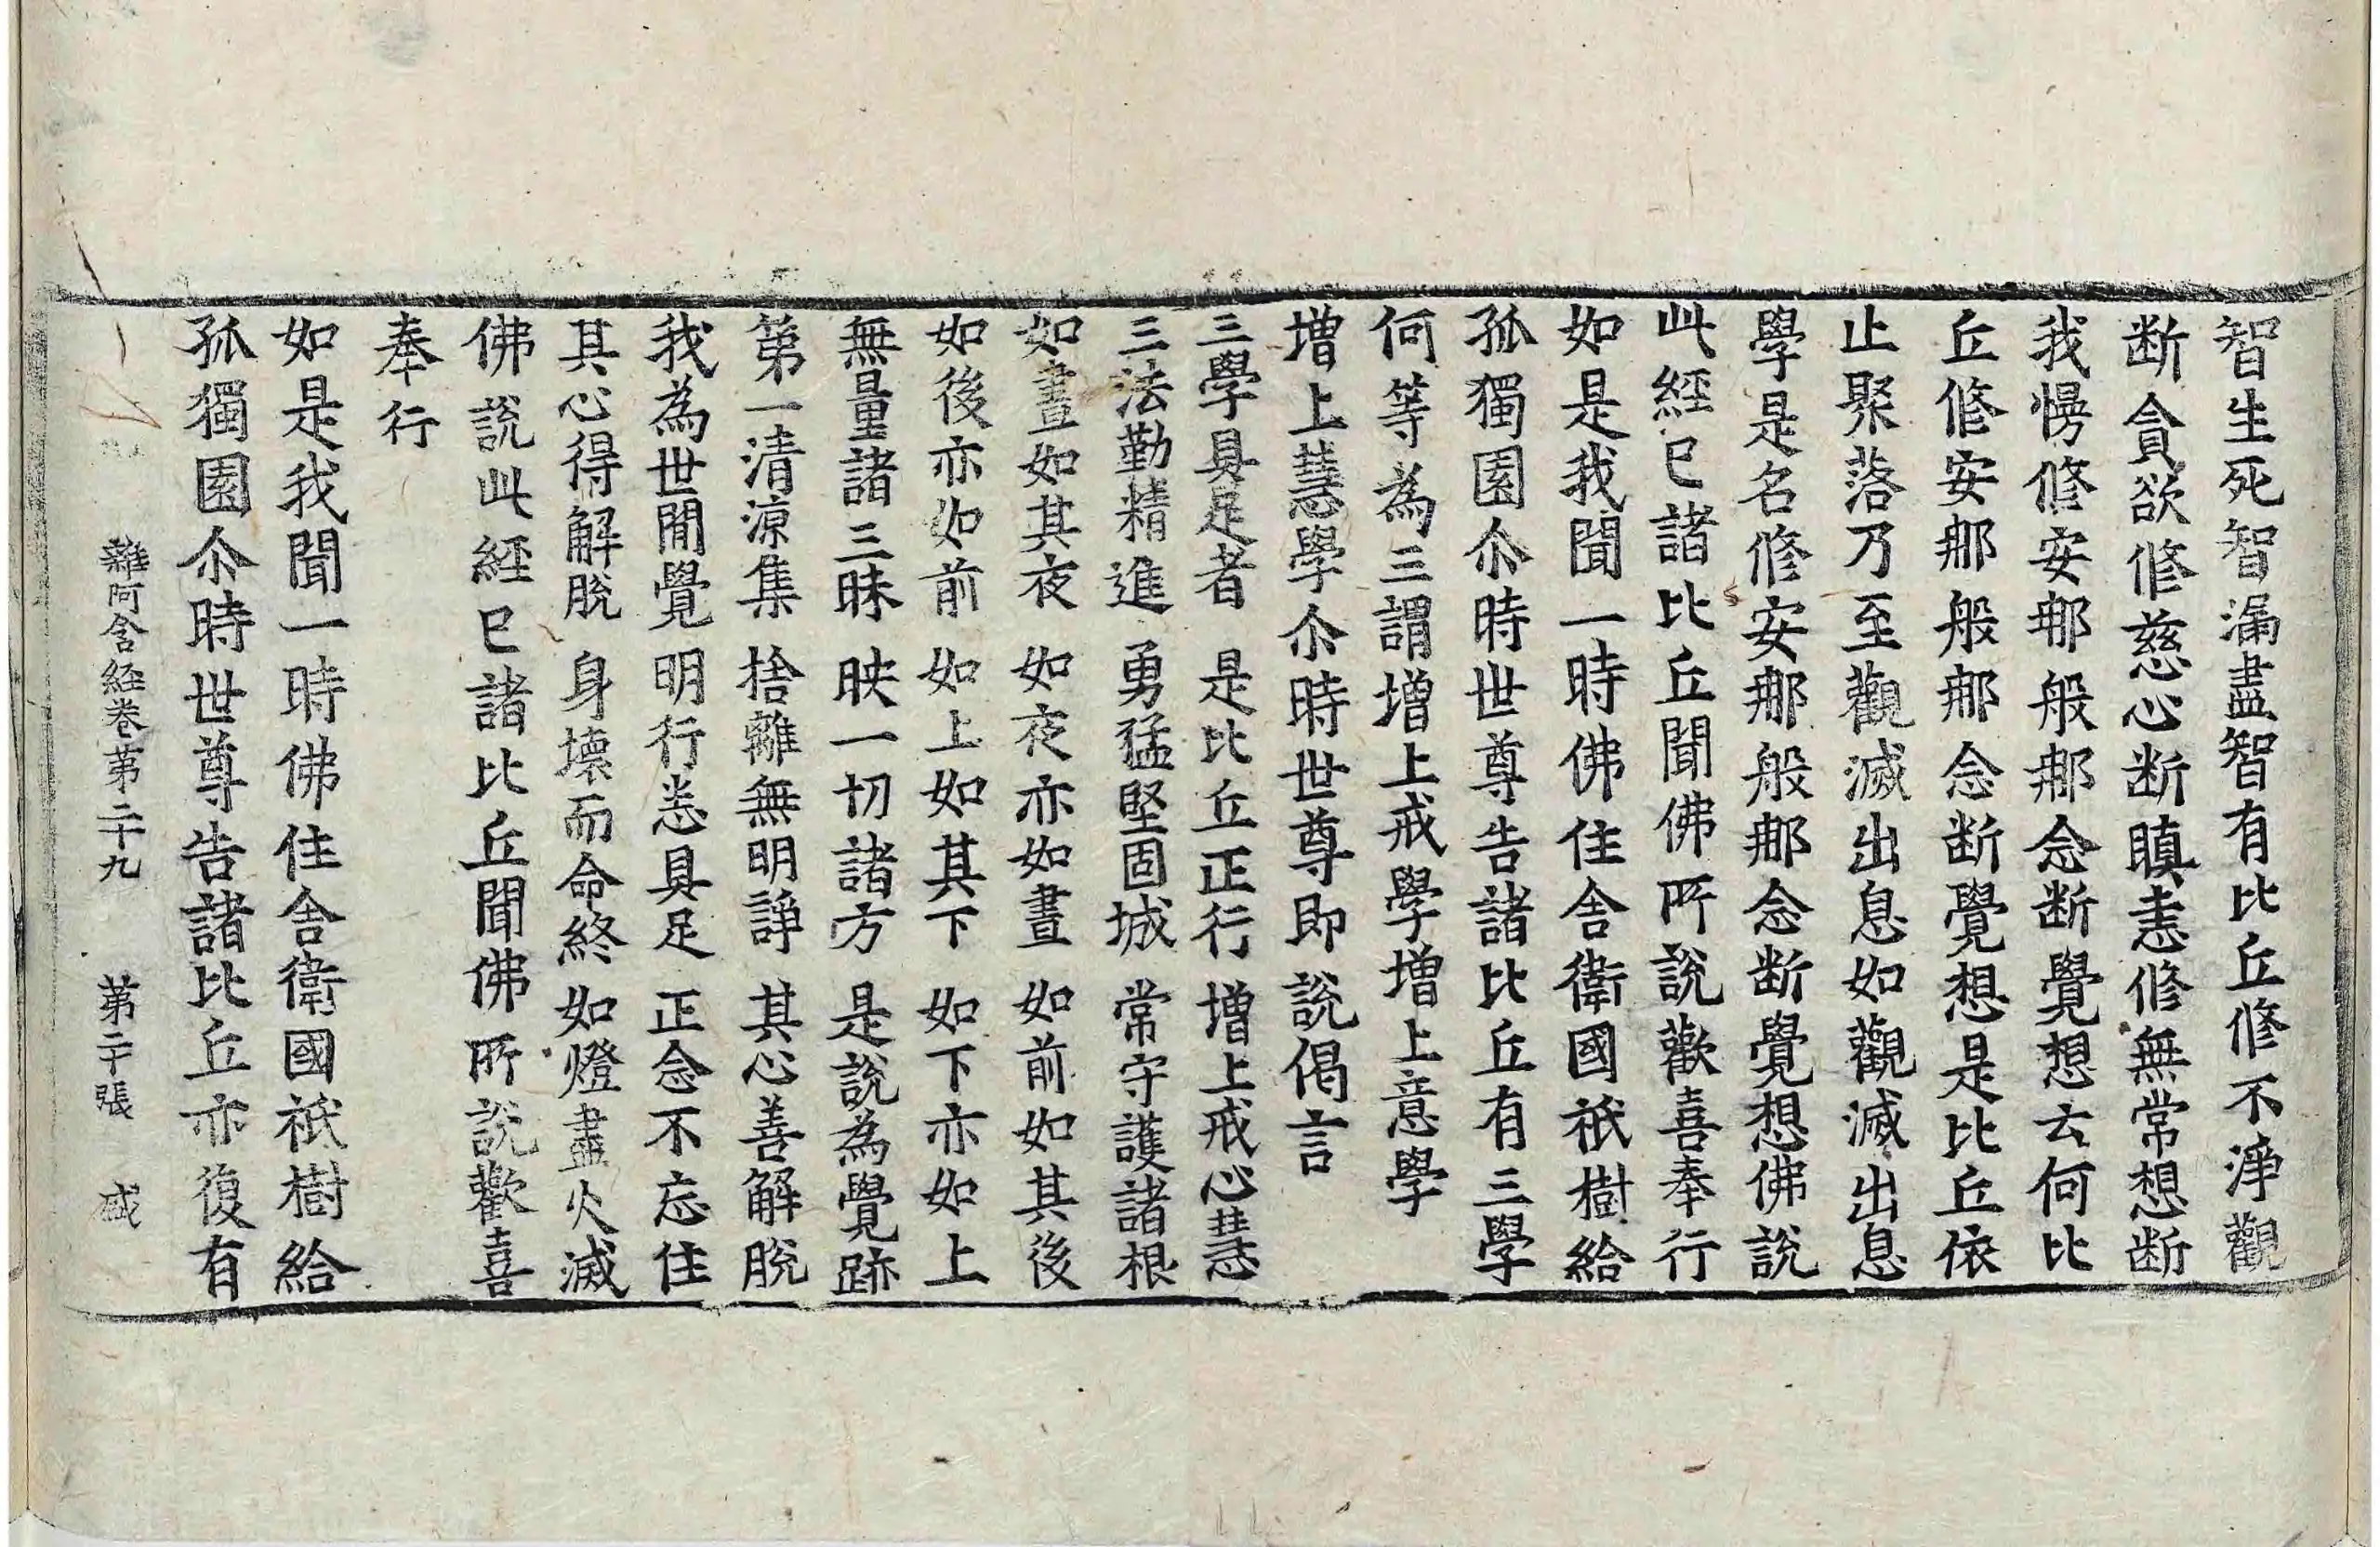 智生死智漏盡智有比丘修不淨觀
断貪欲修慈心断瞋恚修無常想断
我慢修安那般那念断覺想云何比
丘修安那般那念断覺想是比丘依
止聚落乃至觀滅出息如觀滅出息
學是名修安那般那念断覺想佛說
此經已諸比丘聞佛所說歡喜奉行
如是我聞一時佛住舍衛國祇樹給
孤獨園尒時世尊告諸比丘有三學
何等為三謂增上戒學增上意學
增上慧學尒時世尊即說偈言
三學具足者 是比丘正行 增上戒心慧
三法勤精進 勇猛堅固城 常守護諸根
如晝如其夜 如夜亦如晝 如前如其後
如後亦如前 如上如其下 如下亦如上
無量諸三昧 映一切諸方 是說為覺跡
第一清涼集 捨離無明諍 其心善解脫
我為世間覺 明行悉具足 正念不忘住
其心得解脫 身壞而命終 如燈盡火滅
佛說此經已諸比丘聞佛所說歡喜
奉行
如是我聞一時佛住舍衛國祇樹給
孤獨園尒時世尊告諸比丘亦復有
雜阿含経卷第二十九 第二十張 盛